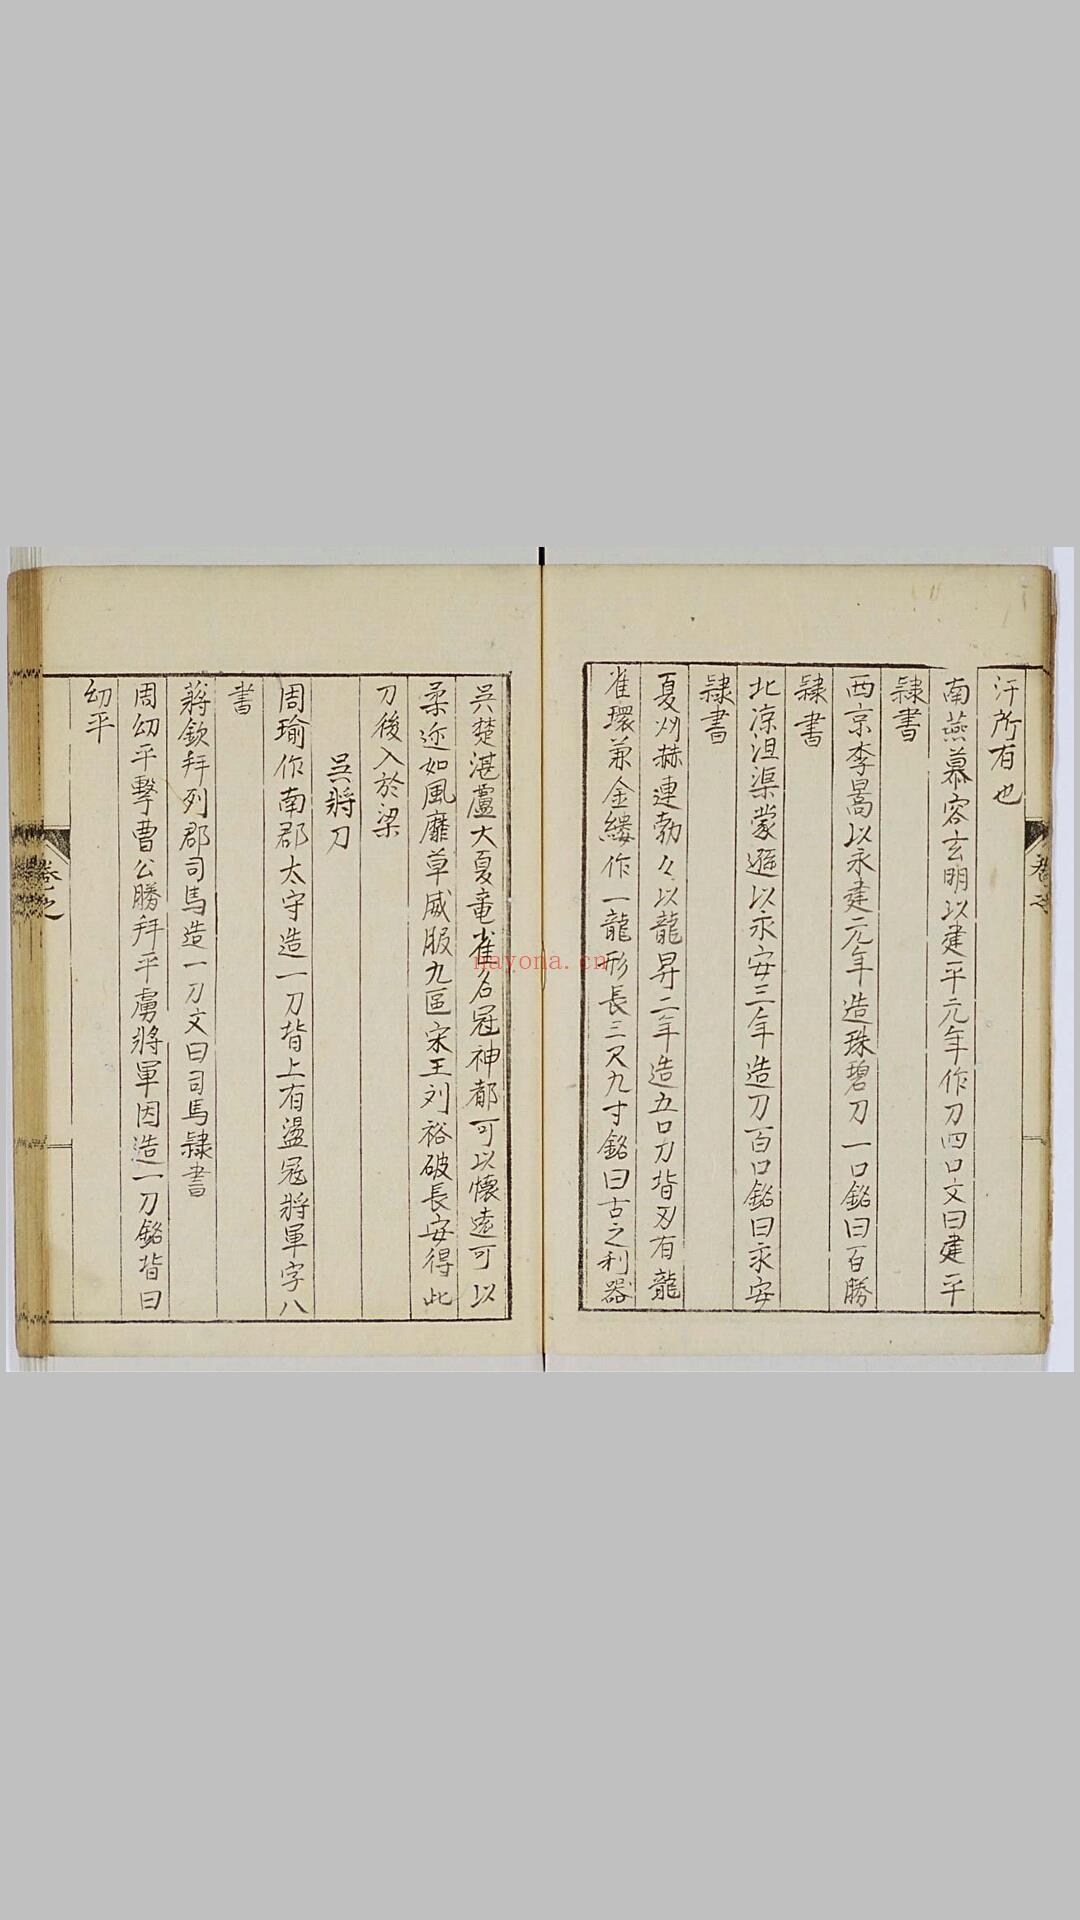 汗所有也
南燕慕容玄明以建平元年作刀四口文曰建平
隸書
西京李暠以永建元年造珠碧刀一口銘曰百勝
隸書
北凉沮渠蒙遜以永安三年造刀百口銘曰永安
隸書
夏州赫連勃々以龍昇二年造五口刀背刃有龍
雀環兼金縷作一龍形長三尺九寸銘曰古之利器
吳楚湛盧大夏竜雀名冠神都可以懷遠可以
柔近如風靡草威服九區宋王刘裕破長安得此
刀後入於梁
吳將刀
周瑜作南郡太守造一刀背上有盪冦將軍字八
書
蔣欽拜列郡司馬造一刀文曰司馬隸書
周幼平擊曹公勝拜平虜將軍因造一刀銘背曰
幼平
卷之
nayona.cn